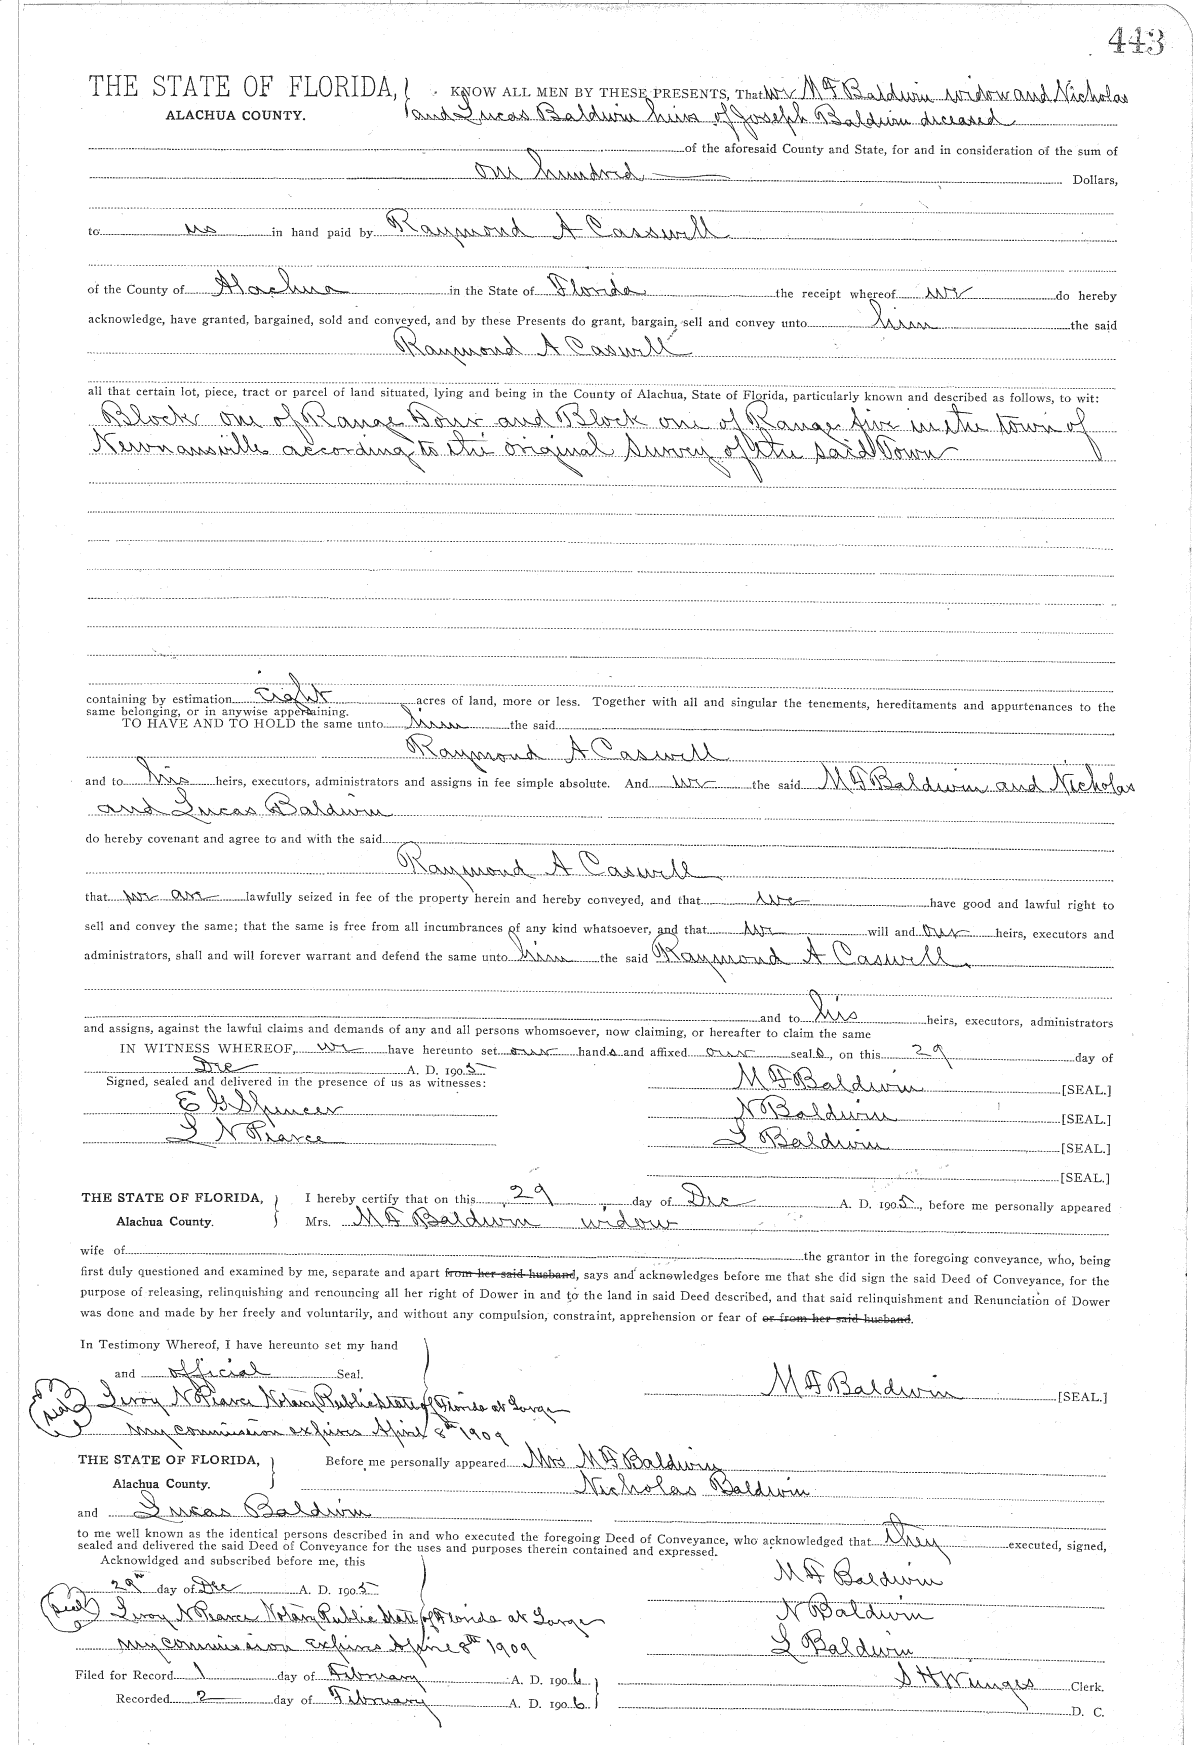 443
THE STATE OF FLORIDA, KNOW ALL MEN BY THESE PRESENTS, That we M F Baldwin widow and Nicholas
ALACHUA COUNTY. and Lucas Baldwin heirs of Joseph Baldwin deceased
of the aforesaid County and State, for and in consideration of the sum of
one hundred Dollars,
to us in hand paid by Raymond A Casswell
of the County of Alachua in the State of Florida the receipt whereof we do hereby
acknowledge, have granted, bargained, sold and conveyed, and by these Presents do grant, bargain, sell and convey unto him the said
Raymond A Caswell
all that certain lot, piece, tract or parcel of land situated, lying and being in the County of Alachua, State of Florida, particularly known and described as follows, to wit:
Block one of Range Four and Block one of Range five in the town of
Newnansville according to the original Survey of the said Town
containing by estimation Eight acres of land, more or less. Together with all and singular the tenements, hereditaments and appurtenances to the
same belonging, or in anywise appertaining.
TO HAVE AND TO HOLD the same unto him the said
Raymond A Caswell
and to his heirs, executors, administrators and assigns in fee simple absolute. And we the said M F Baldwin and Nicholas
and Lucas Baldwin
do hereby covenant and agree to and with the said
Raymond A Caswell
that we are lawfully seized in fee of the property herein and hereby conveyed, and that we have good and lawful right to
sell and convey the same; that the same is free from all incumbrances of any kind whatsoever, and that we will and our heirs, executors and
administrators, shall and will forever warrant and defend the same unto him the said Raymond A Caswell.
and to his heirs, executors, administrators
and assigns, against the lawful claims and demands of any and all persons whomsoever, now claiming, or hereafter to claim the same
IN WITNESS WHEREOF, we have hereunto set our hands and affixed our seals, on this 29 day of
Dec A. D. 1905
Signed, sealed and delivered in the presence of us as witnesses: M F Baldwin [SEAL.]
E G Spencer N Baldwin [SEAL.]
L N Pearce L Baldwin [SEAL.]
[SEAL.]
THE STATE OF FLORIDA, I hereby certify that on this 29 day of Dec A. D. 1905, before me personally appeared
Alachua County. Mrs. M F Baldwin widow
wife of the grantor in the foregoing conveyance, who, being
first duly questioned and examined by me, separate and apart from her said husband, says and acknowledges before me that she did sign the said Deed of Conveyance, for the
purpose of releasing, relinquishing and renouncing all her right of Dower in and to the land in said Deed described, and that said relinquishment and Renunciation of Dower
was done and made by her freely and voluntarily, and without any compulsion, constraint, apprehension or fear of or from her said husband.
In Testimony Whereof, I have hereunto set my hand
and official Seal. M F Baldwin [SEAL.]
Seal Leroy N Pearce Notary Public State of Florida at Large
My commission expires April 8th 1909
THE STATE OF FLORIDA, Before me personally appeared Mrs M F Baldwin
Alachua County. Nicholas Baldwin
and Lucas Baldwin
to me well known as the identical persons described in and who executed the foregoing Deed of Conveyance, who acknowledged that they executed, signed,
sealed and delivered the said Deed of Conveyance for the uses and purposes therein contained and expressed.
Acknowldged and subscribed before me, this M F Baldwin
29th day of Dec A. D. 1905
Seal Leroy N Pearce Notary Public State of Florida at Large N Baldwin
My commission Expires April 8th 1909 L Baldwin
Filed for Record 1 day of February A. D. 1906 S H Wienges Clerk.
Recorded 2 day of February A. D. 1906 D. C.